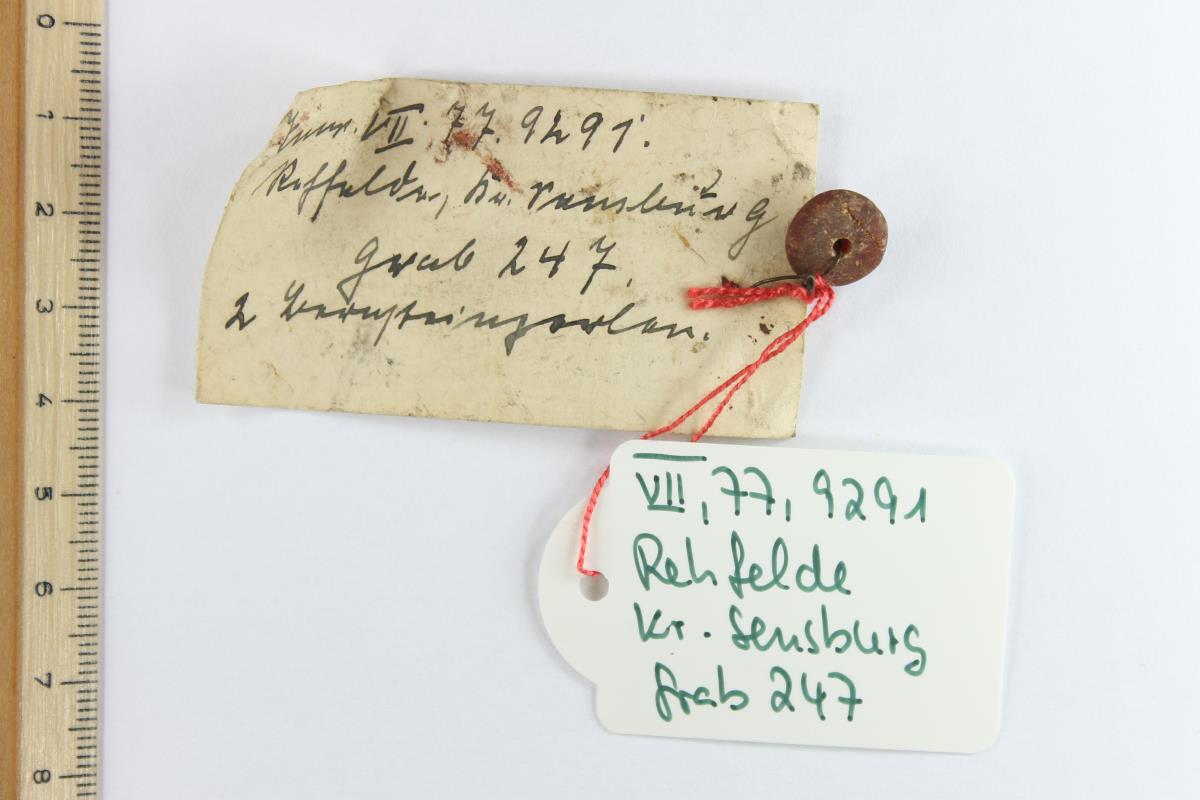 Inv. VII. 77. 9291.
Rehfelde, Kr. Sensburg
Grab 247.
2 Bernsteinperlen.
VII, 77, 9291
Rehfelde
Kr. Sensburg
Grab 247
0
1
2
3
4
5
6
7
8